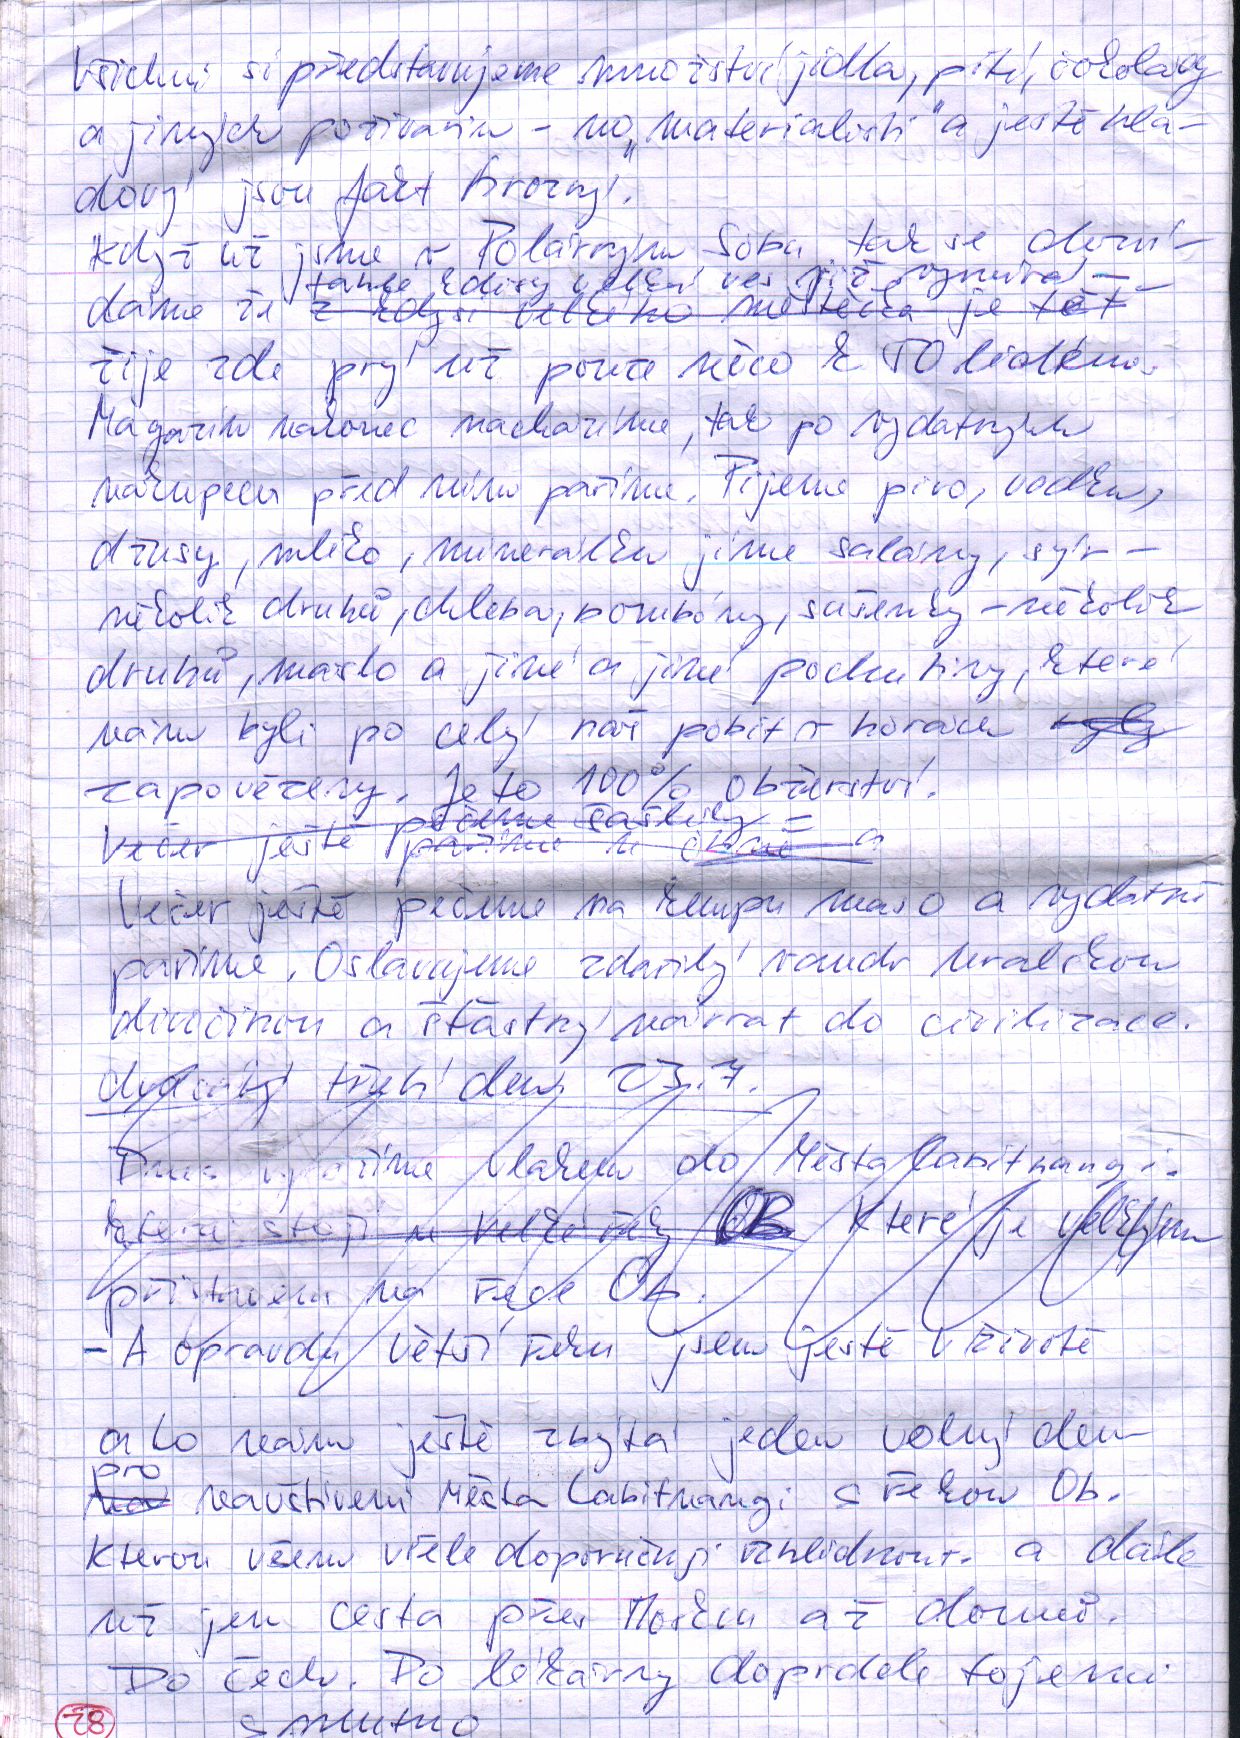 Všichni si představujeme množství jídla, pití, čokolády
a jiných požívatin – no „materialisti" a ještě hla-
dový jsou fakt hrozný.
Když už jsme v Polárným Sobu tak se dozví-
tahle kdisy velká ves již vymírá –
dáme že z kdysi velkého městečka je teť
žije zde prý už pouze něco k 50 lidem.
Magazin nakonec nacházíme, tak po vydatným
nákupem před ním paříme. Pijeme pivo, vodku,
džusy, mlíko, minerálku jíme salámy, sýr –
několik druhů, chleba, bombóny, sušenky – několik
druhů, máslo a jiné a jiné pochutiny, které
nám byli po celý náš pobit v horách byly
zapovězeny. Je to 100% obžerství.
pečeme šašliky
Večer ještě paříme u ohně a
Večer ještě pečeme na kempu maso a vydatně
paříme. Oslavujeme zdařilý vandr uralskou
divočinou a šťastný návrat do civilizace.
dvacátý třetí den 23.7.
Dnes vyrážíme vlakem do Města Labitnangi.
které stojí u velké řeky OB Které je velkým
přístavem na řece Ob.
– A opravdu větší řeku jsem ještě v životě
a to nám ještě zbývá jeden volný den
pro
na navštívení Města Labitnangi s řekou Ob.
Kterou všem vřele doporučuji zhlídnout. a dále
už jen cesta přes Moskvu až domů.
Do Čech. Do lékárny doprdele toje mi
smutno
28